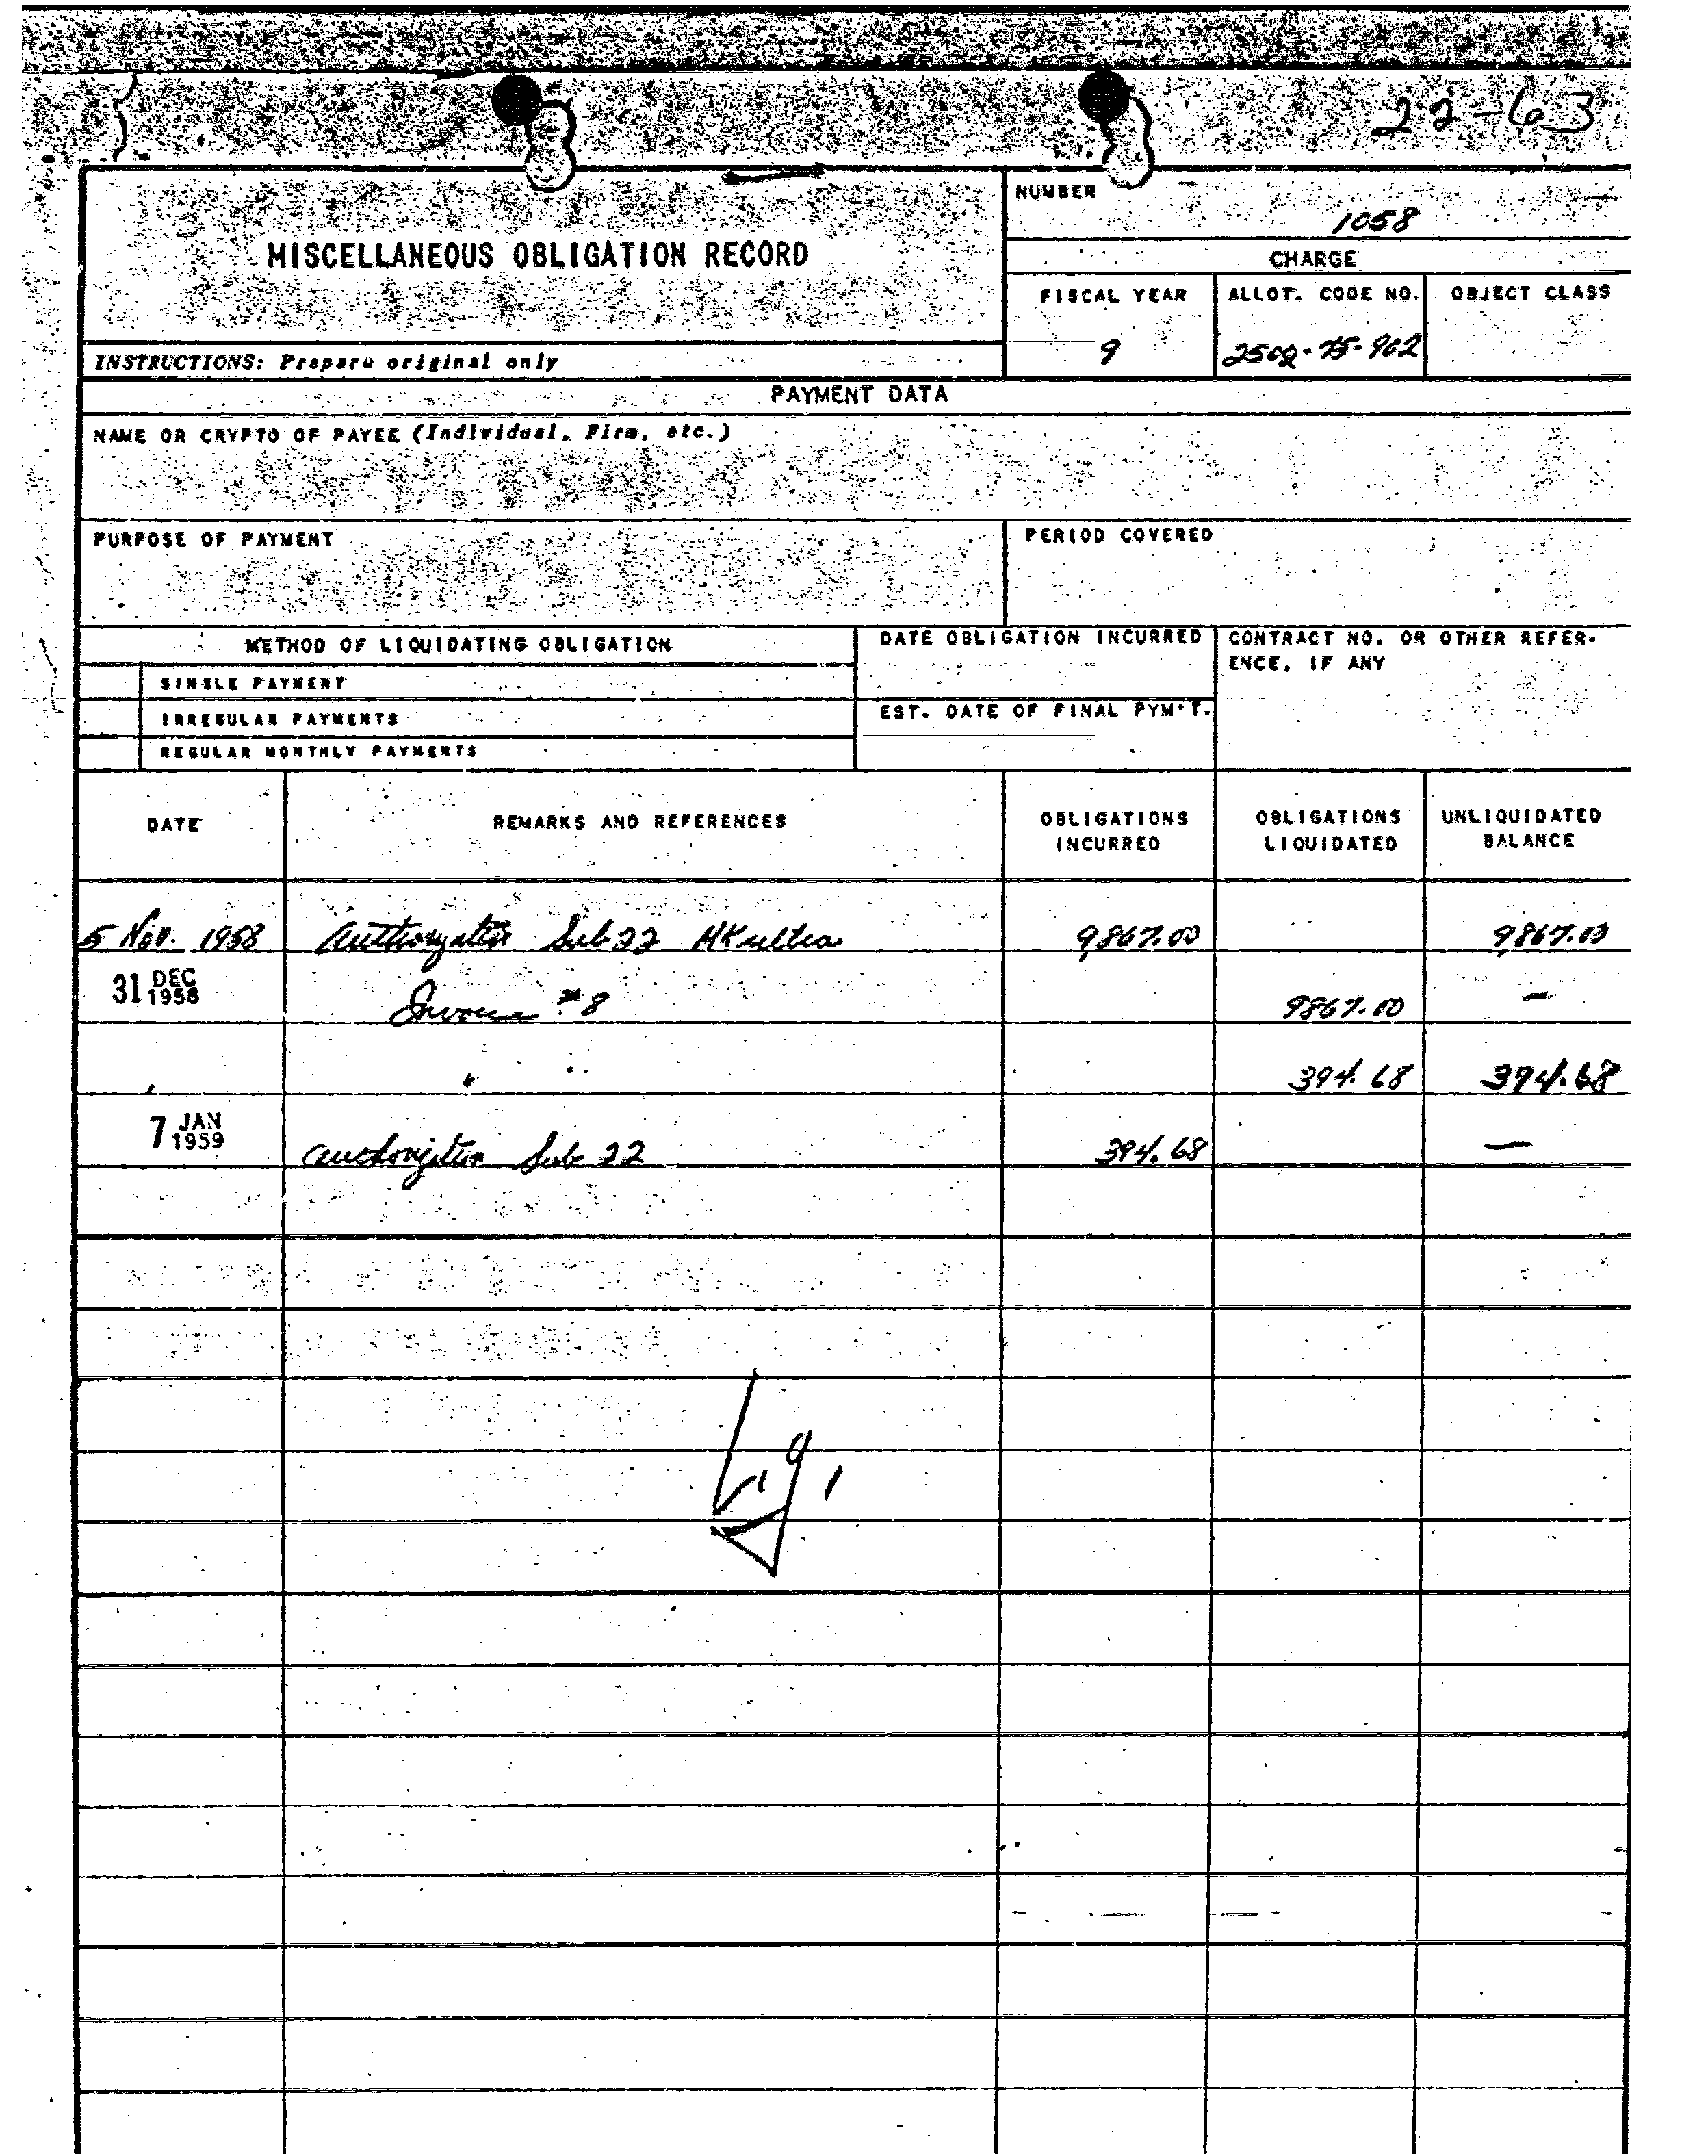 22-63
NUMBER
1058
MISCELLANEOUS OBLIGATION RECORD
CHARGE
FISCAL YEAR ALLOT. CODE NO. OBJECT CLASS
9 2502-25-902
INSTRUCTIONS: Prepare original only
PAYMENT DATA
NAME OR CRYPTO OF PAYEE (Individual, Firm, etc.)
PURPOSE OF PAYMENT PERIOD COVERED
METHOD OF LIQUIDATING OBLIGATION DATE OBLIGATION INCURRED CONTRACT NO. OR OTHER REFER-
ENCE, IF ANY
SINGLE PAYMENT
IRREGULAR PAYMENTS EST. DATE OF FINAL PYM'T.
REGULAR MONTHLY PAYMENTS
DATE REMARKS AND REFERENCES OBLIGATIONS INCURRED OBLIGATIONS LIQUIDATED UNLIQUIDATED BALANCE
5 Nov. 1958 Authorization Sub 22 MKultra 9867.00 9867.00
31 DEC 1958 Invoice #8 9867.00 —
" " 394.68 394.68
7 JAN 1959 authorization Sub 22 394.68 —